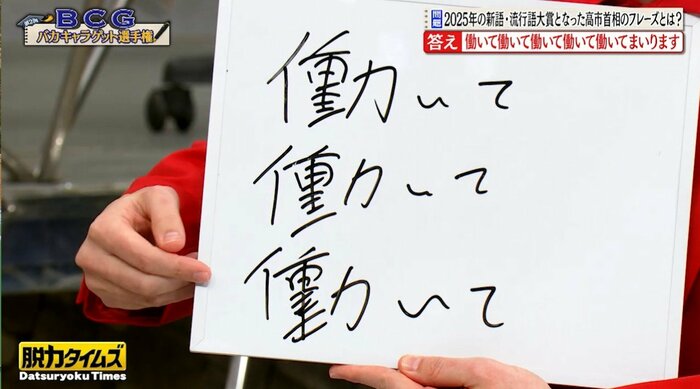 第2回 BCG
バカキャラゲット選手権
問題 2025年の新語・流行語大賞となった高市首相のフレーズとは?
答え 働いて働いて働いて働いて働いてまいります
働いて
働いて
働いて
脱力タイムズ
Datsuryoku Times